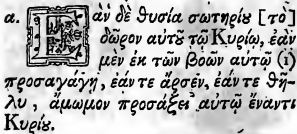 α. Ἐὰν δὲ θυσία σωτηρίȣ [τὸ]
δῶρον αὐτȣ͂ τῷ Κυρίῳ, ἐὰν
μὲν ἐκ τῶν βοῶν αὐτῷ (ι)
προσαγάγῃ, ἐάν τε ἄρσεν, ἐάν τε θῆ-
λυ, ἄμωμον προσάξει αὐτῷ ἔναντι
Κυρίȣ.